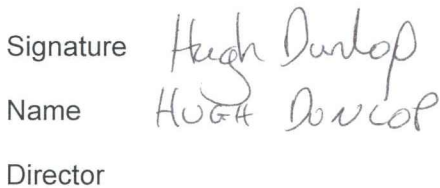 Signature Hugh Dunlop
Name HUGH DUNLOP
Director